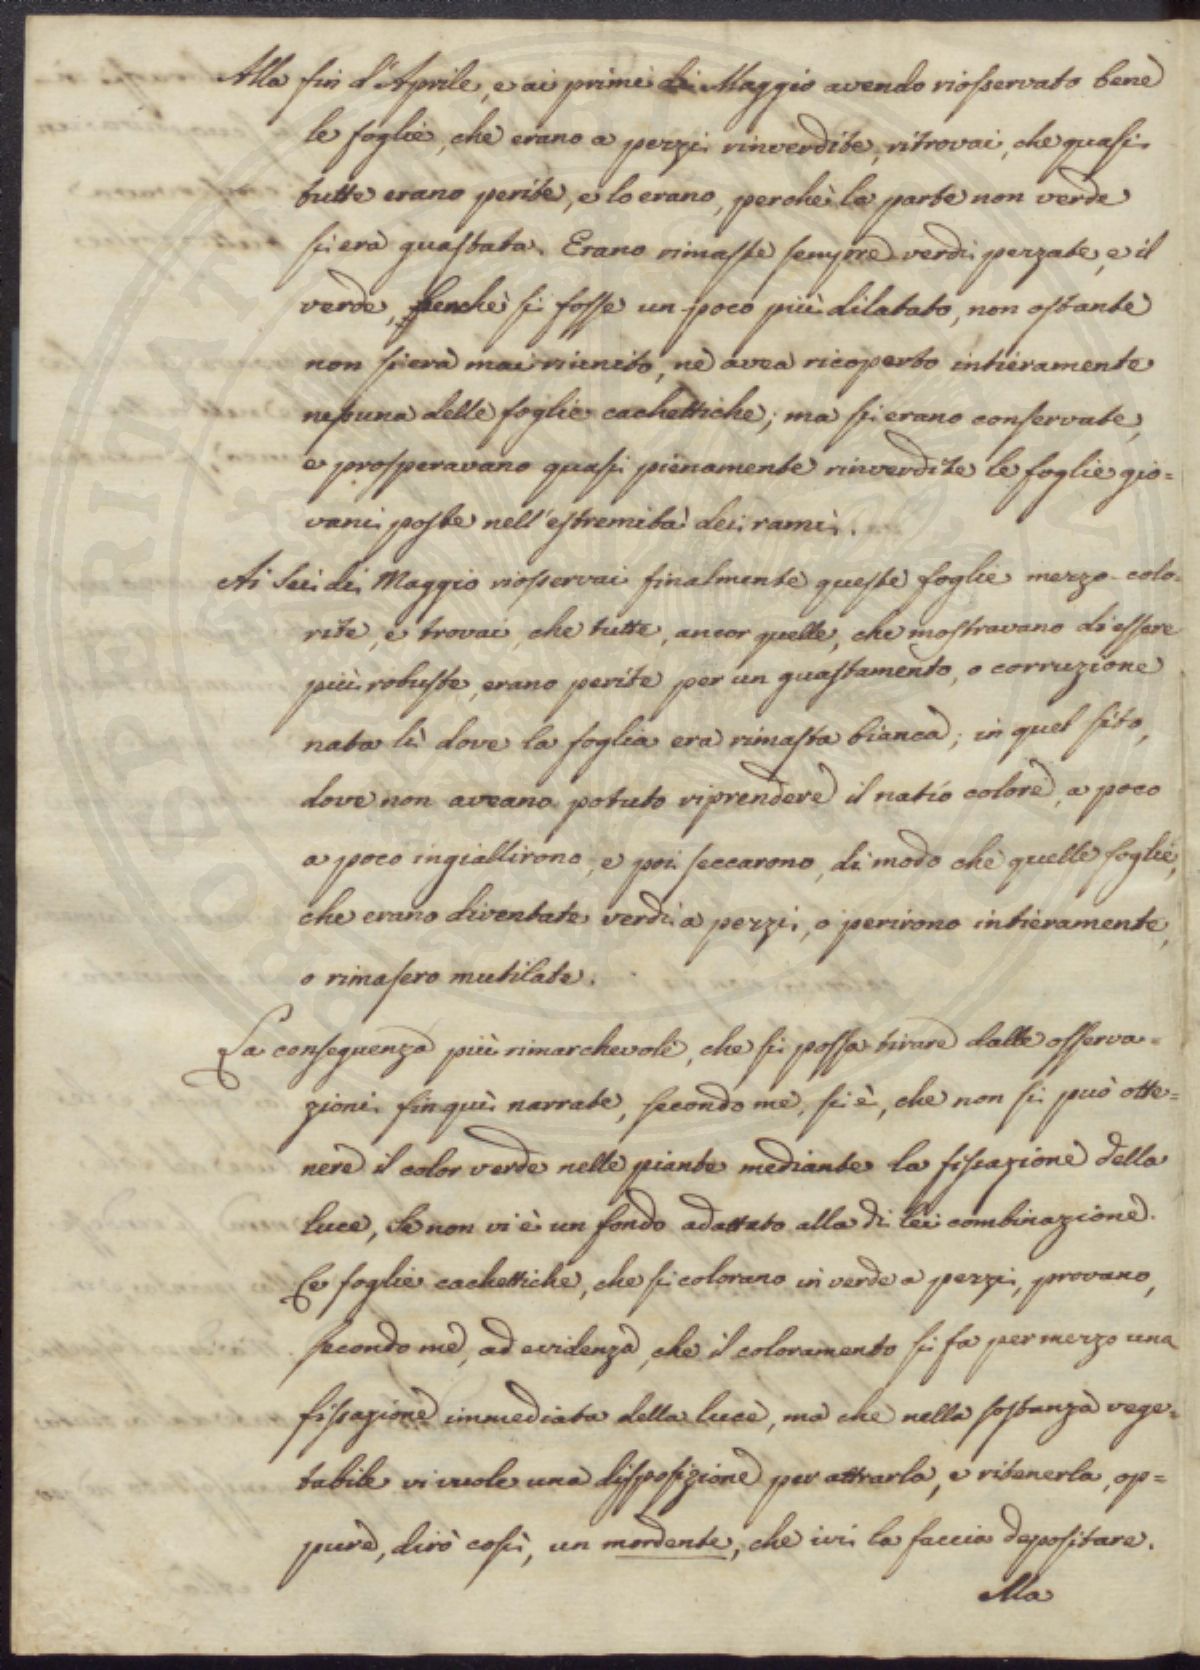 Alla fin d'Aprile, e ai primi di Maggio avendo riosservato bene
le foglie, che erano a pezzi rinverdite, ritrovai, che quasi
tutte erano perite, e lo erano, perchè la parte non verde
si era guastata. Erano rimaste sempre verdi pezzate, e il
verde, benchè si fosse un poco più dilatato, non ostante
non si era mai riunito, nè avea ricoperto intieramente
nessuna delle foglie cachettiche; ma si erano conservate,
e prosperavano quasi pienamente rinverdite le foglie gio=
vani poste nell'estremità dei rami.
Ai sei di Maggio riosservai finalmente queste foglie mezzo colo=
rite, e trovai, che tutte, ancor quelle, che mostravano di essere
più robuste, erano perite per un guastamento, o corruzione
nata lì dove la foglia era rimasta bianca; in quel sito,
dove non aveano potuto riprendere il natìo colore, a poco
a poco ingiallirono, e poi seccarono, di modo chè quelle foglie,
che erano diventate verdi a pezzi, o perirono intieramente,
o rimasero mutilate.
La conseguenza più rimarchevole, che si possa tirare dalle osserva=
zioni finquì narrate, secondo me, si è, che non si può otte=
nere il color verde nelle piante mediante la fissazione della
luce, se non vi è un fondo adattato alla di lei combinazione.
Le foglie cachettiche, che si colorano in verde a pezzi, provano,
secondo me, ad evidenza, che il coloramento si fa per mezzo una
fissazione immediata della luce, ma che nella sostanza vege=
tabile vi vuole una disposizione per attrarla, e ritenerla, op=
pure, dirò così, un mordente, che ivi la faccia depositare.
Ma